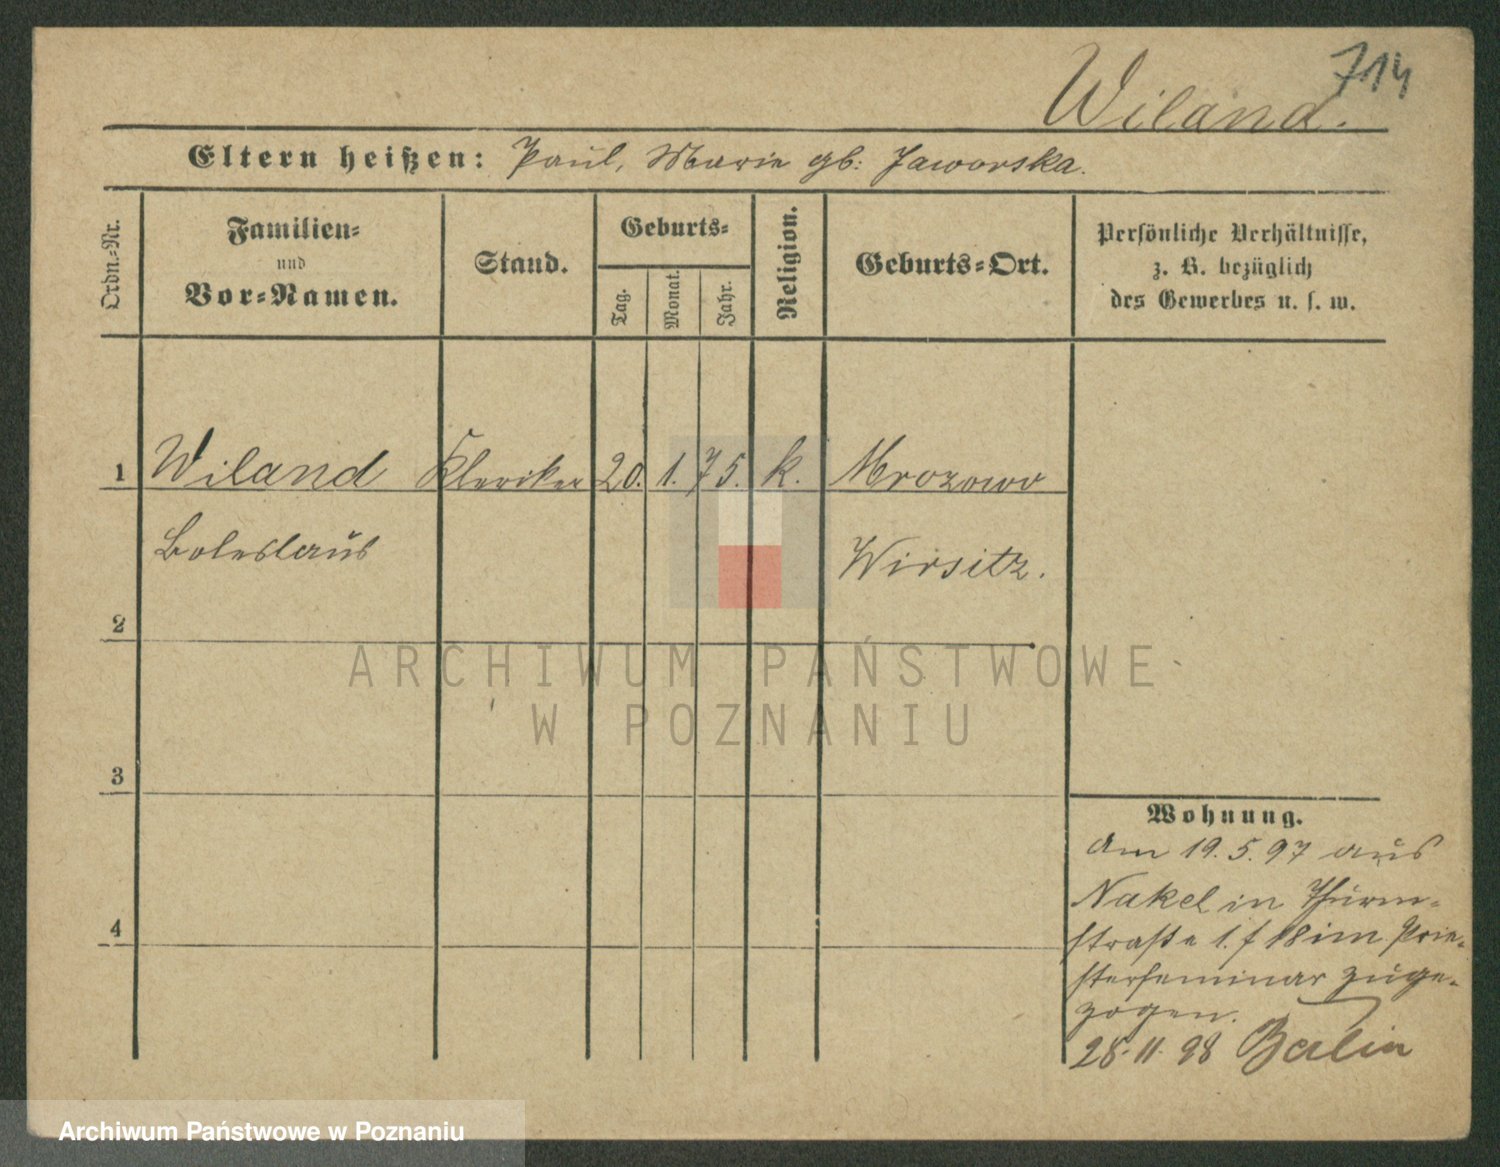 714
Wiland.
Eltern heißen: Paul, Marie gb: Jaworska.
Ordn.-Nr.
Familien-
und
Vor-Namen.
Stand.
Geburts-
Tag.
Monat.
Jahr.
Religion.
Geburts-Ort.
Persönliche Verhältnisse,
z. B. bezüglich
des Gewerbes u. s. w.
1 Wiland Kleriker 20. 1. 75. k. Mrozowo
Boleslaus Wirsitz.
2
ARCHIWUM PAŃSTWOWE
W POZNANIU
3
Wohnung.
Am 19.5.97 aus
Nakel in Thurm-
4
straße 1. f 18 im Prie-
sterseminar zuge-
zogen.
28.11.98 Berlin
Archiwum Państwowe w Poznaniu